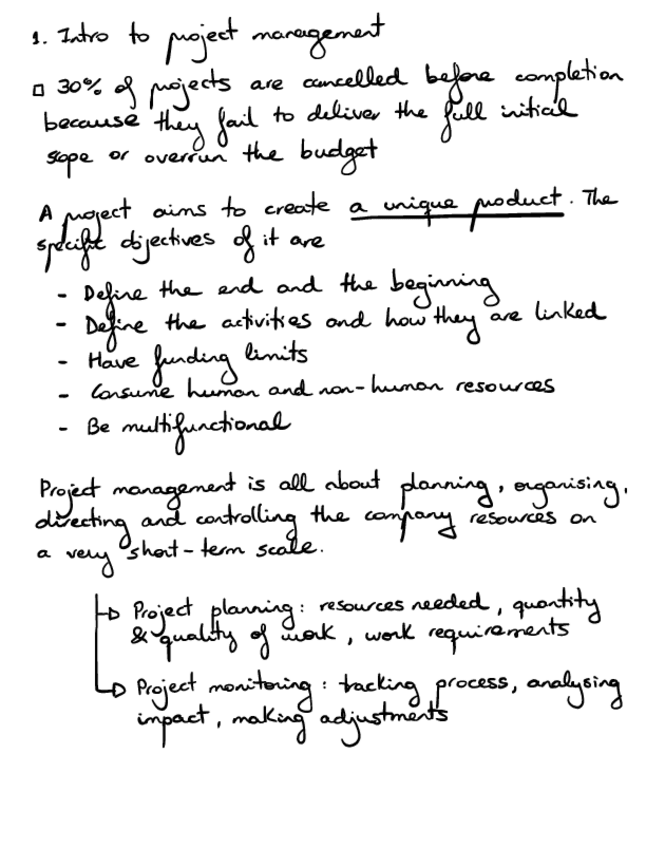 1. Intro to project management
▫ 30% of projects are cancelled before completion
because they fail to deliver the full initial
scope or overrun the budget
A project aims to create a unique product. The
specific objectives of it are
- Define the end and the beginning
- Define the activities and how they are linked
- Have funding limits
- Consume human and non-human resources
- Be multifunctional
Project management is all about planning, organising,
directing and controlling the company resources on
a very short-term scale.
→ Project planning: resources needed, quantity
& quality of work, work requirements
→ Project monitoring: tracking process, analysing
impact, making adjustments